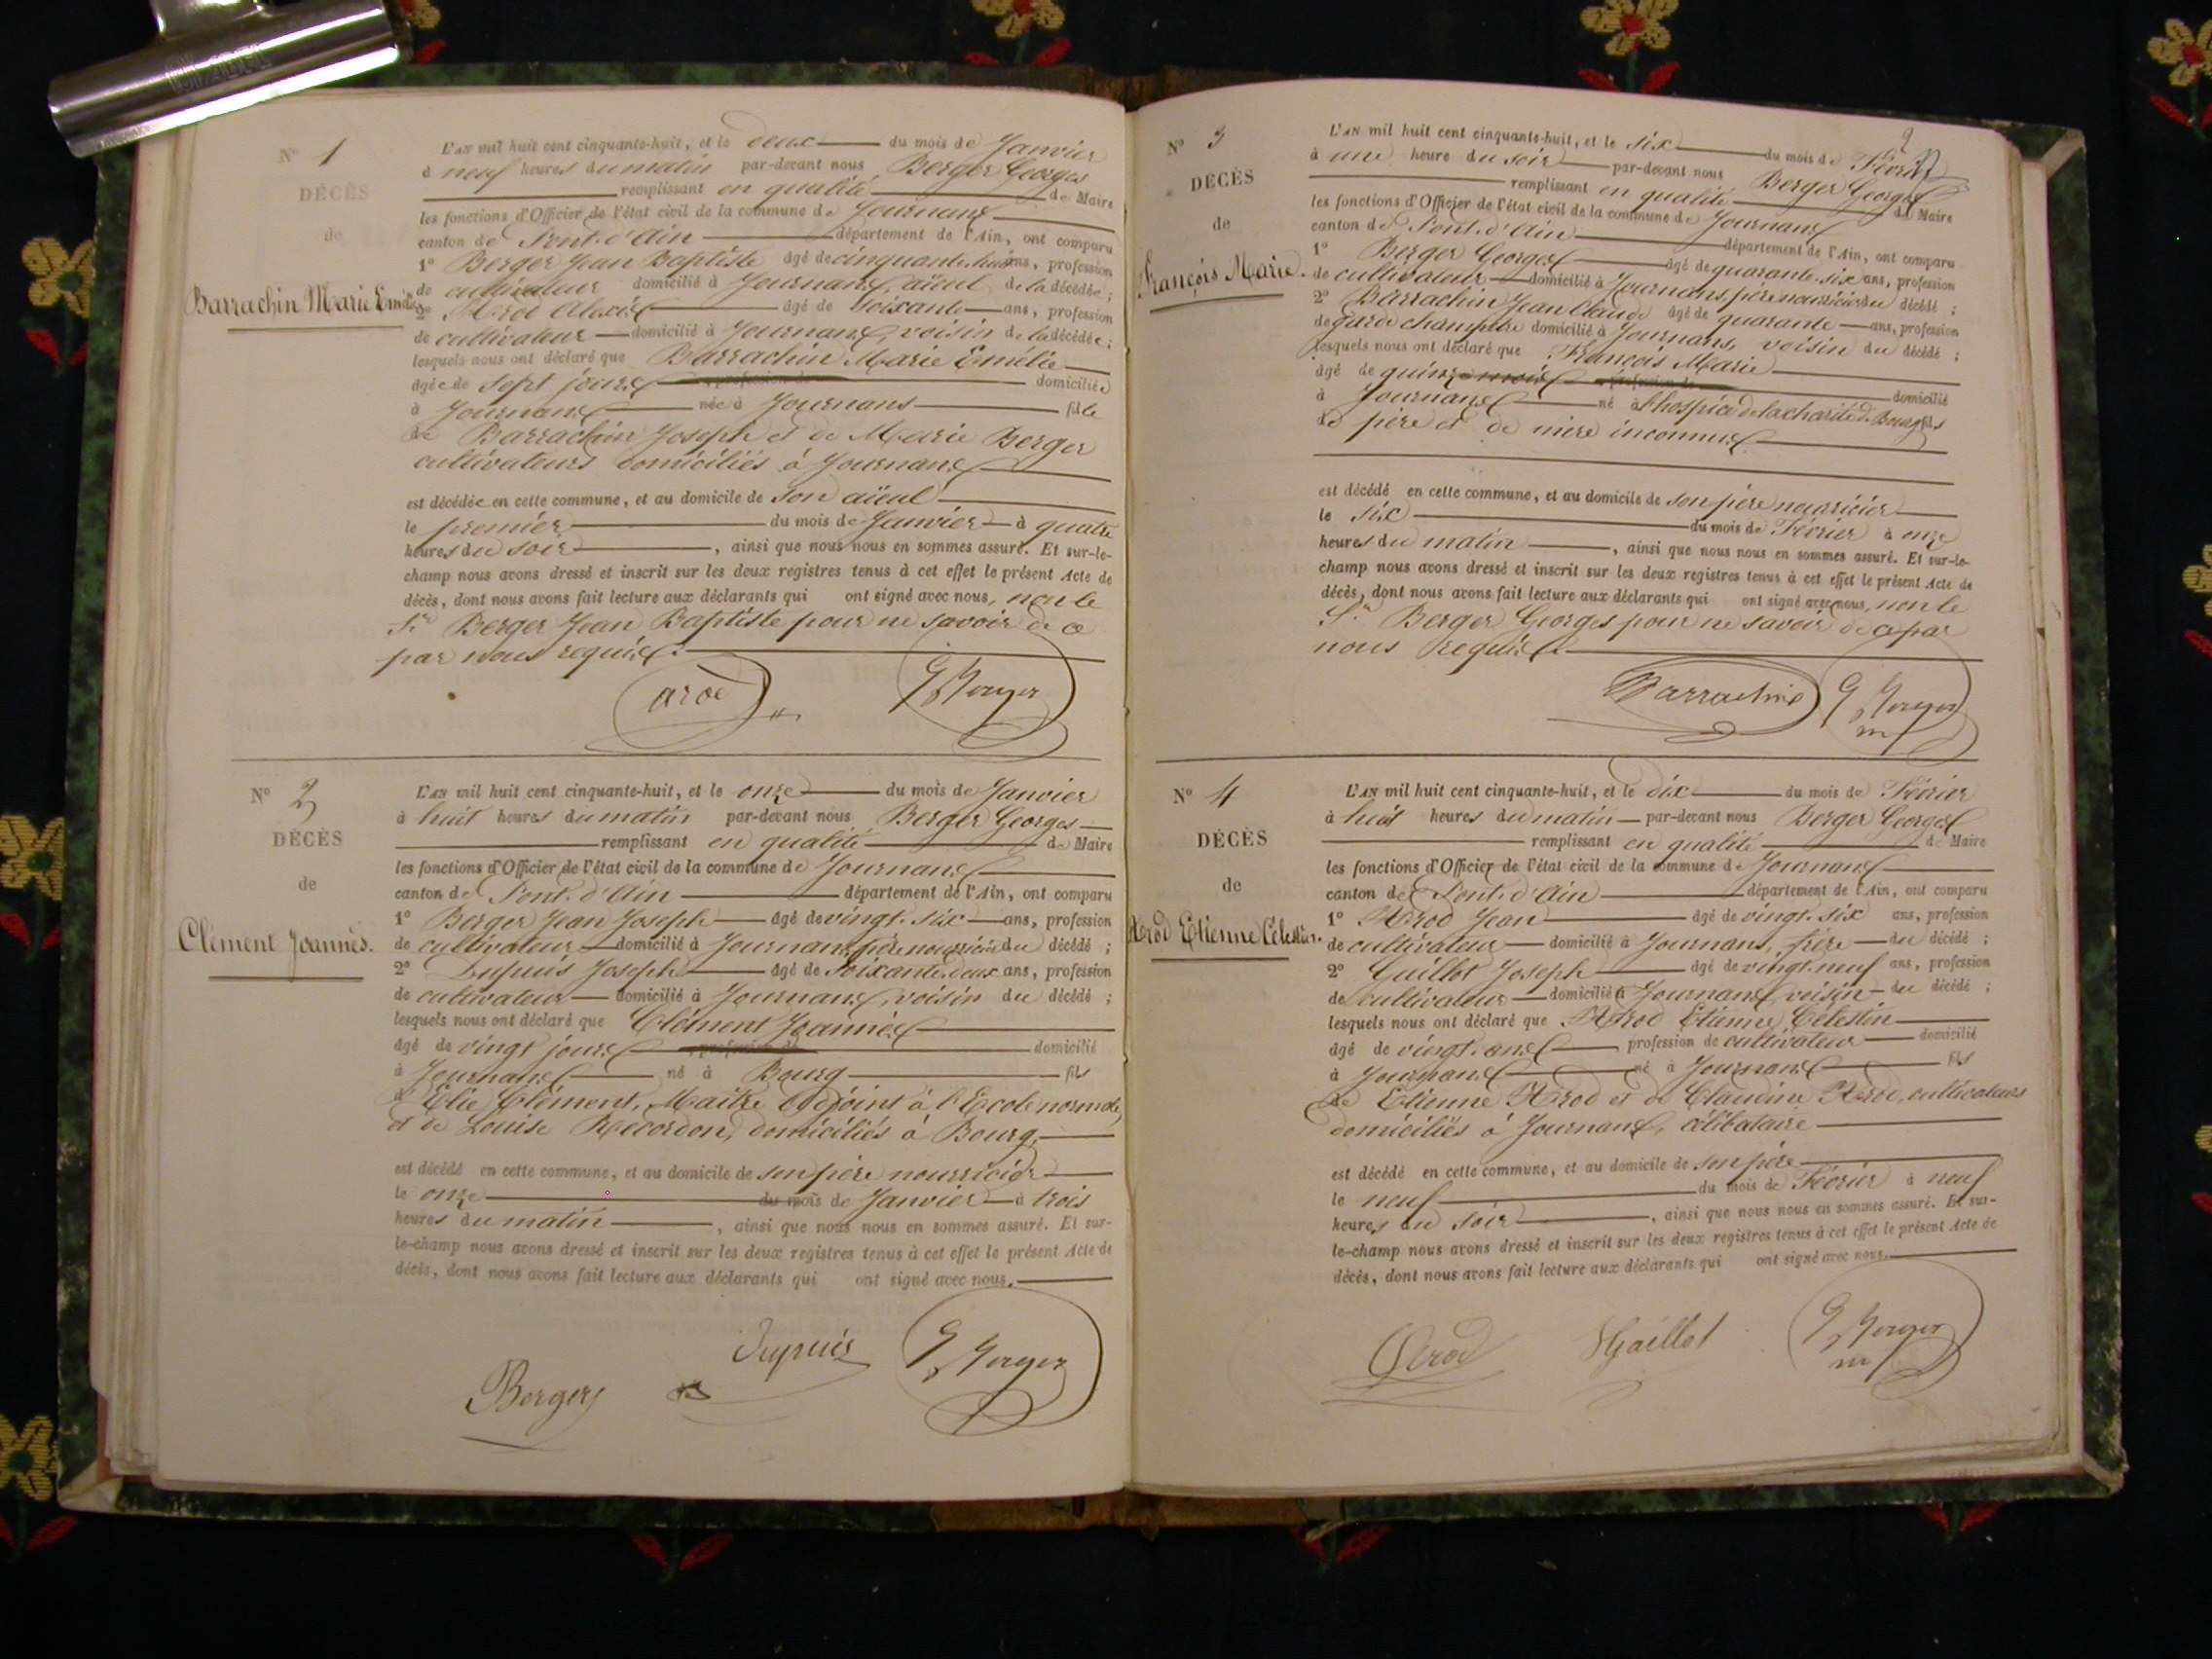 CITADEL
N° 1
DÉCÈS
de
Barrachin Marie Emélie
L'AN mil huit cent cinquante-huit, et le deux du mois de Janvier
à neuf heures du matin par-devant nous Berger Georges
remplissant en qualité de Maire
les fonctions d'Officier de l'état civil de la commune de Journans
canton de Pont-d'Ain département de l'Ain, ont comparu
1° Berger Jean Baptiste âgé de cinquante-huit ans, profession
de cultivateur domicilié à Journans, aïeul de la décédée ;
2° Arod Alexis âgé de soixante ans, profession
de cultivateur domicilié à Journans, voisin de la décédée ;
lesquels nous ont déclaré que Barrachin Marie Emélie
âgée de sept jours profession de domiciliée
à Journans née à Journans fille
de Barrachin Joseph et de Marie Berger
cultivateurs domiciliés à Journans
est décédée en cette commune, et au domicile de son aïeul
le premier du mois de Janvier à quatre
heures du soir, ainsi que nous nous en sommes assuré. Et sur-le-
champ nous avons dressé et inscrit sur les deux registres tenus à cet effet le présent Acte de
décès, dont nous avons fait lecture aux déclarants qui ont signé avec nous, non le
Sr Berger Jean Baptiste pour ne savoir de ce
par nous requis.
arod G Berger
N° 2
DÉCÈS
de
Clément Joannès.
L'AN mil huit cent cinquante-huit, et le onze du mois de Janvier
à huit heures du matin par-devant nous Berger Georges
remplissant en qualité de Maire
les fonctions d'Officier de l'état civil de la commune de Journans
canton de Pont-d'Ain département de l'Ain, ont comparu
1° Berger Jean Joseph âgé de vingt-six ans, profession
de cultivateur domicilié à Journans, père nourricier du décédé ;
2° Dupuis Joseph âgé de soixante-deux ans, profession
de cultivateur domicilié à Journans, voisin du décédé ;
lesquels nous ont déclaré que Clément Joannès
âgé de vingt jours profession de domicilié
à Journans né à Bourg fils
d'Elie Clément, Maître adjoint à l'Ecole normale,
et de Louise Recordon, domiciliés à Bourg,
est décédé en cette commune, et au domicile de son père nourricier
le onze du mois de Janvier à trois
heures du matin, ainsi que nous nous en sommes assuré. Et sur-
le-champ nous avons dressé et inscrit sur les deux registres tenus à cet effet le présent Acte de
décès, dont nous avons fait lecture aux déclarants qui ont signé avec nous.
Berger Dupuis G Berger
2
N° 3
DÉCÈS
de
François Marie.
L'AN mil huit cent cinquante-huit, et le six du mois de Février
à une heure du soir par-devant nous Berger Georges
remplissant en qualité de Maire
les fonctions d'Officier de l'état civil de la commune de Journans
canton de Pont-d'Ain département de l'Ain, ont comparu
1° Berger Georges âgé de quarante-six ans, profession
de cultivateur domicilié à Journans, père nourricier du décédé ;
2° Barrachin Jean Claude âgé de quarante ans, profession
de garde champêtre domicilié à Journans, voisin du décédé ;
lesquels nous ont déclaré que François Marie
âgé de quinze mois profession de domicilié
à Journans né à l'hospice de la charité de Bourg fils
de père et de mère inconnus
est décédé en cette commune, et au domicile de son père nourricier
le six du mois de Février à onze
heures du matin, ainsi que nous nous en sommes assuré. Et sur-le-
champ nous avons dressé et inscrit sur les deux registres tenus à cet effet le présent Acte de
décès, dont nous avons fait lecture aux déclarants qui ont signé avec nous, non le
Sr Berger Georges pour ne savoir de ce par
nous requis.
Barrachin G Berger
m
N° 4
DÉCÈS
de
Arod Etienne Célestin.
L'AN mil huit cent cinquante-huit, et le dix du mois de Février
à huit heures du matin par-devant nous Berger Georges
remplissant en qualité de Maire
les fonctions d'Officier de l'état civil de la commune de Journans
canton de Pont-d'Ain département de l'Ain, ont comparu
1° Arod Jean âgé de vingt-six ans, profession
de cultivateur domicilié à Journans, frère du décédé ;
2° Guillot Joseph âgé de vingt-neuf ans, profession
de cultivateur domicilié à Journans, voisin du décédé ;
lesquels nous ont déclaré que Arod Etienne Célestin
âgé de vingt ans profession de cultivateur domicilié
à Journans né à Journans fils
de Etienne Arod et de Claudine Arod, cultivateurs
domiciliés à Journans, célibataire
est décédé en cette commune, et au domicile de son père
le neuf du mois de Février à neuf
heures du soir, ainsi que nous nous en sommes assuré. Et sur-
le-champ nous avons dressé et inscrit sur les deux registres tenus à cet effet le présent Acte de
décès, dont nous avons fait lecture aux déclarants qui ont signé avec nous.
Arod Guillot G Berger
m